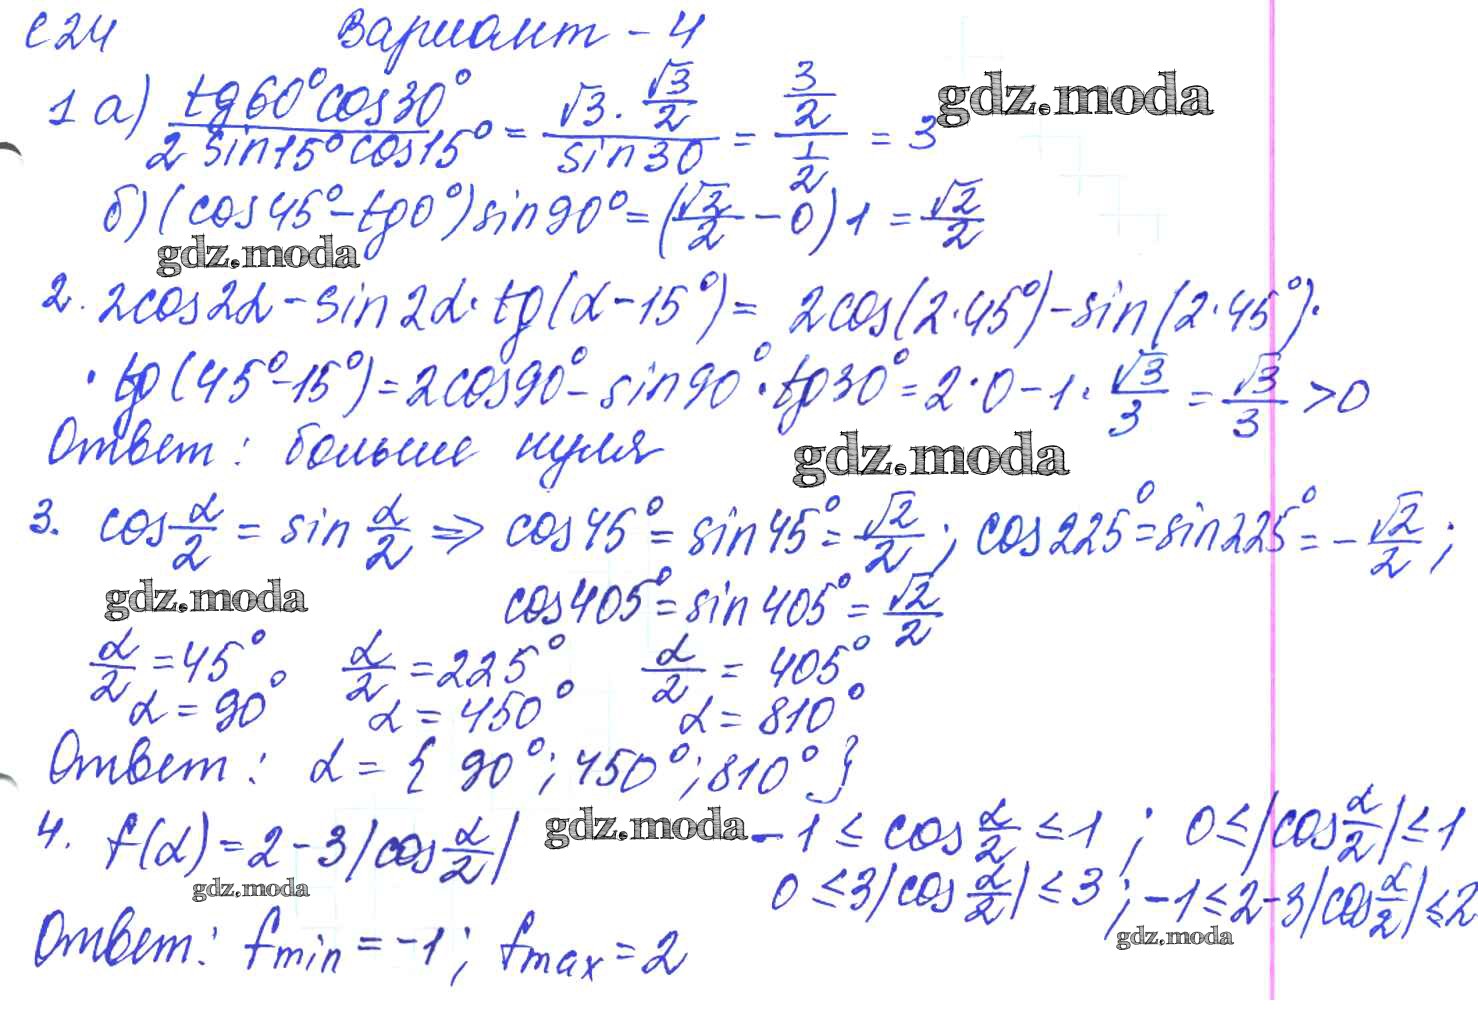 С24 Вариант - 4
1 а) tg60°cos30° / 2 sin15°cos15° = √3 · √3/2 / sin30 = 3/2 / 1/2 = 3
gdz.moda
б) (cos45° - tg0°) sin90° = (√2/2 - 0) 1 = √2/2
gdz.moda
2. 2cos2α - sin2α · tg(α - 15°) = 2cos(2·45°) - sin(2·45°)·
· tg(45° - 15°) = 2cos90° - sin90° · tg30° = 2·0 - 1 · √3/3 = √3/3 > 0
Ответ: больше нуля
gdz.moda
3. cos α/2 = sin α/2 ⇒ cos45° = sin45° = √2/2; cos225° = sin225° = -√2/2;
gdz.moda
cos405° = sin405° = √2/2
α/2 = 45° α/2 = 225° α/2 = 405°
α = 90° α = 450° α = 810°
Ответ: α = { 90°; 450°; 810° }
4. f(α) = 2 - 3|cos α/2| gdz.moda -1 ≤ cos α/2 ≤ 1; 0 ≤ |cos α/2| ≤ 1
gdz.moda
0 ≤ 3|cos α/2| ≤ 3; -1 ≤ 2-3|cos α/2| ≤ 2
gdz.moda
Ответ: fmin = -1; fmax = 2